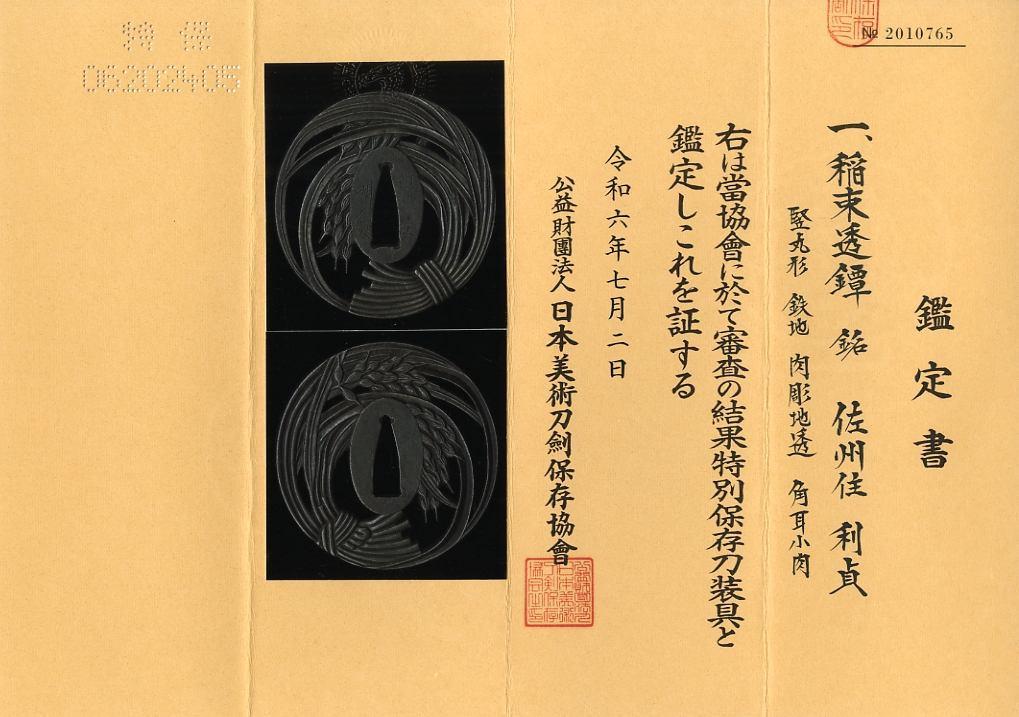 № 2010765
鑑定書
一、稲束透鐔 銘 佐州住 利貞
竪丸形 鉄地 肉彫地透 角耳小肉
右は當協會に於て審査の結果特別保存刀装具と
鑑定しこれを証する
令和六年七月二日
公益財團法人 日本美術刀劍保存協會
特保
06202405